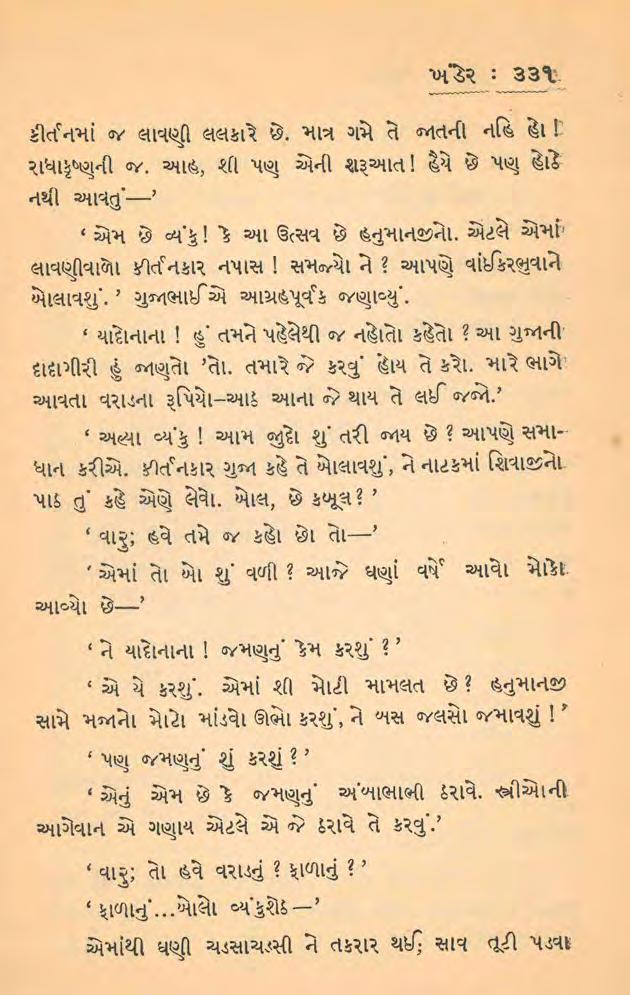 ખંડેર : ૩૩૧
કીર્તનમાં જ લાવણી લલકારે છે. માત્ર ગમે તે જાતની નહિ હો !
રાધાકૃષ્ણની જ. આહ, શી પણ એની શરૂઆત! હૈયે છે પણ હોઠે
નથી આવતું—’
‘ એમ છે વ્યંકુ! કે આ ઉત્સવ છે હનુમાનજીનો. એટલે એમાં
લાવણીવાળો કીર્તનકાર નપાસ ! સમજ્યો ને ? આપણે વાંઈકરભુવાને
બોલાવશું.’ ગુજાભાઈએ આગ્રહપૂર્વક જણાવ્યું.
‘ યાદોનાના ! હું તમને પહેલેથી જ નહોતો કહેતો ? આ ગુજાની
દાદાગીરી હું જાણતો ’તો. તમારે જે કરવું હોય તે કરો. મારે ભાગે
આવતા વરાડના રૂપિયો–આઠ આના જે થાય તે લઈ જજો.’
‘ અલ્યા વ્યંકુ ! આમ જુદો શું તરી જાય છે ? આપણે સમા-
ધાન કરીએ. કીર્તનકાર ગુજા કહે તે બોલાવશું, ને નાટકમાં શિવાજીનો
પાઠ તું કહે એણે લેવો. બોલ, છે કબૂલ ? ’
‘ વારુ; હવે તમે જ કહો છો તો—’
‘ એમાં તો બો શું વળી ? આજે ઘણાં વર્ષે આવો મોકો
આવ્યો છે—’
‘ ને યાદોનાના ! જમણનું કેમ કરશું ? ’
‘ એ યે કરશું. એમાં શી મોટી મામલત છે ? હનુમાનજી
સામે મજાનો મોટો માંડવો ઊભો કરશું, ને બસ જલસો જમાવશું ! ’
‘ પણ જમણનું શું કરશું ? ’
‘ એનું એમ છે કે જમણનું અંબાભાભી ઠરાવે. સ્ત્રીઓની
આગેવાન એ ગણાય એટલે એ જે ઠરાવે તે કરવું.’
‘ વારુ; તો હવે વરાડનું ? ફાળાનું ? ’
‘ ફાળાનું...બોલો વ્યંકુશેઠ —’
એમાંથી ઘણી ચડસાચડસી ને તકરાર થઈ; સાવ તૂટી પડવા